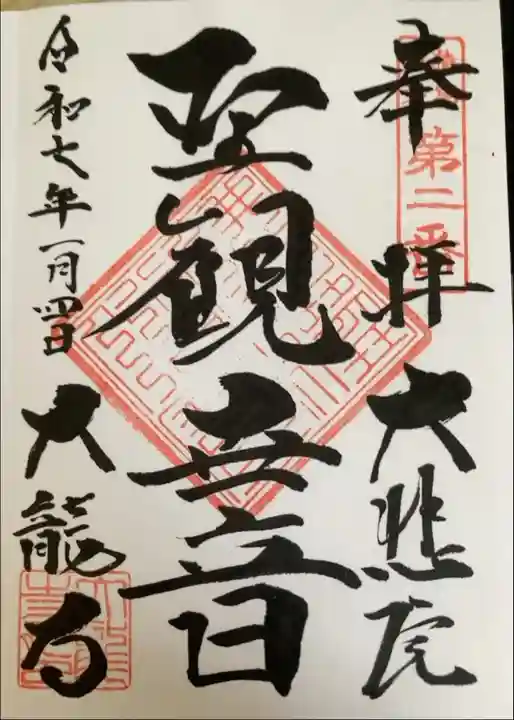 奉拝
第二番
大悲
聖観世音
令和七年一月四日
大龍寺